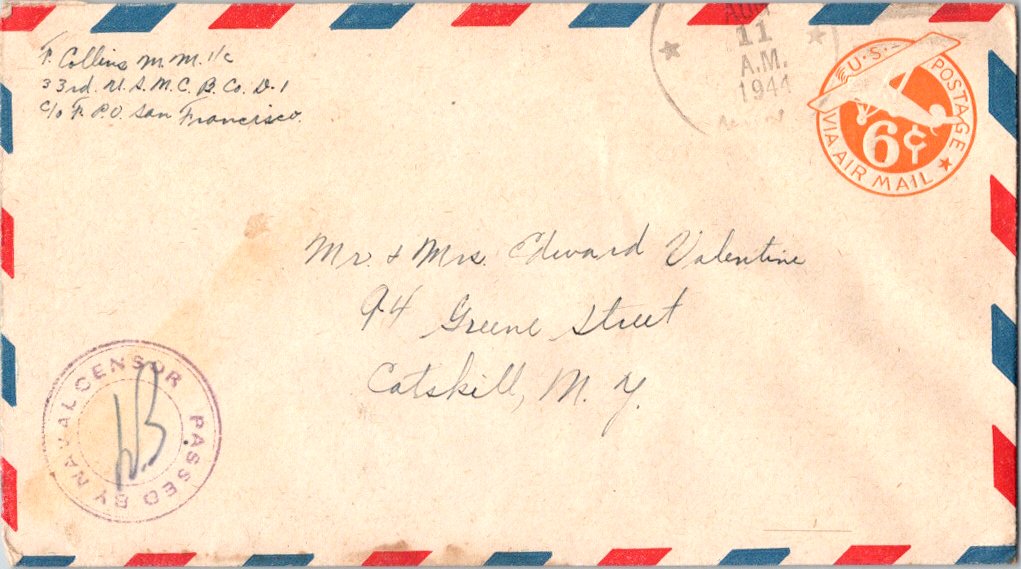 F. Collins M M. 1/c
33rd. U. S. N. C. B. Co. D-1
c/o F. P.O. San Francisco.
AUG
11
A.M.
1944
U·S· POSTAGE
6¢
VIA AIR MAIL
Mr. & Mrs. Edward Valentine
94 Greene Street
Catskill, N. Y.
PASSED BY NAVAL CENSOR